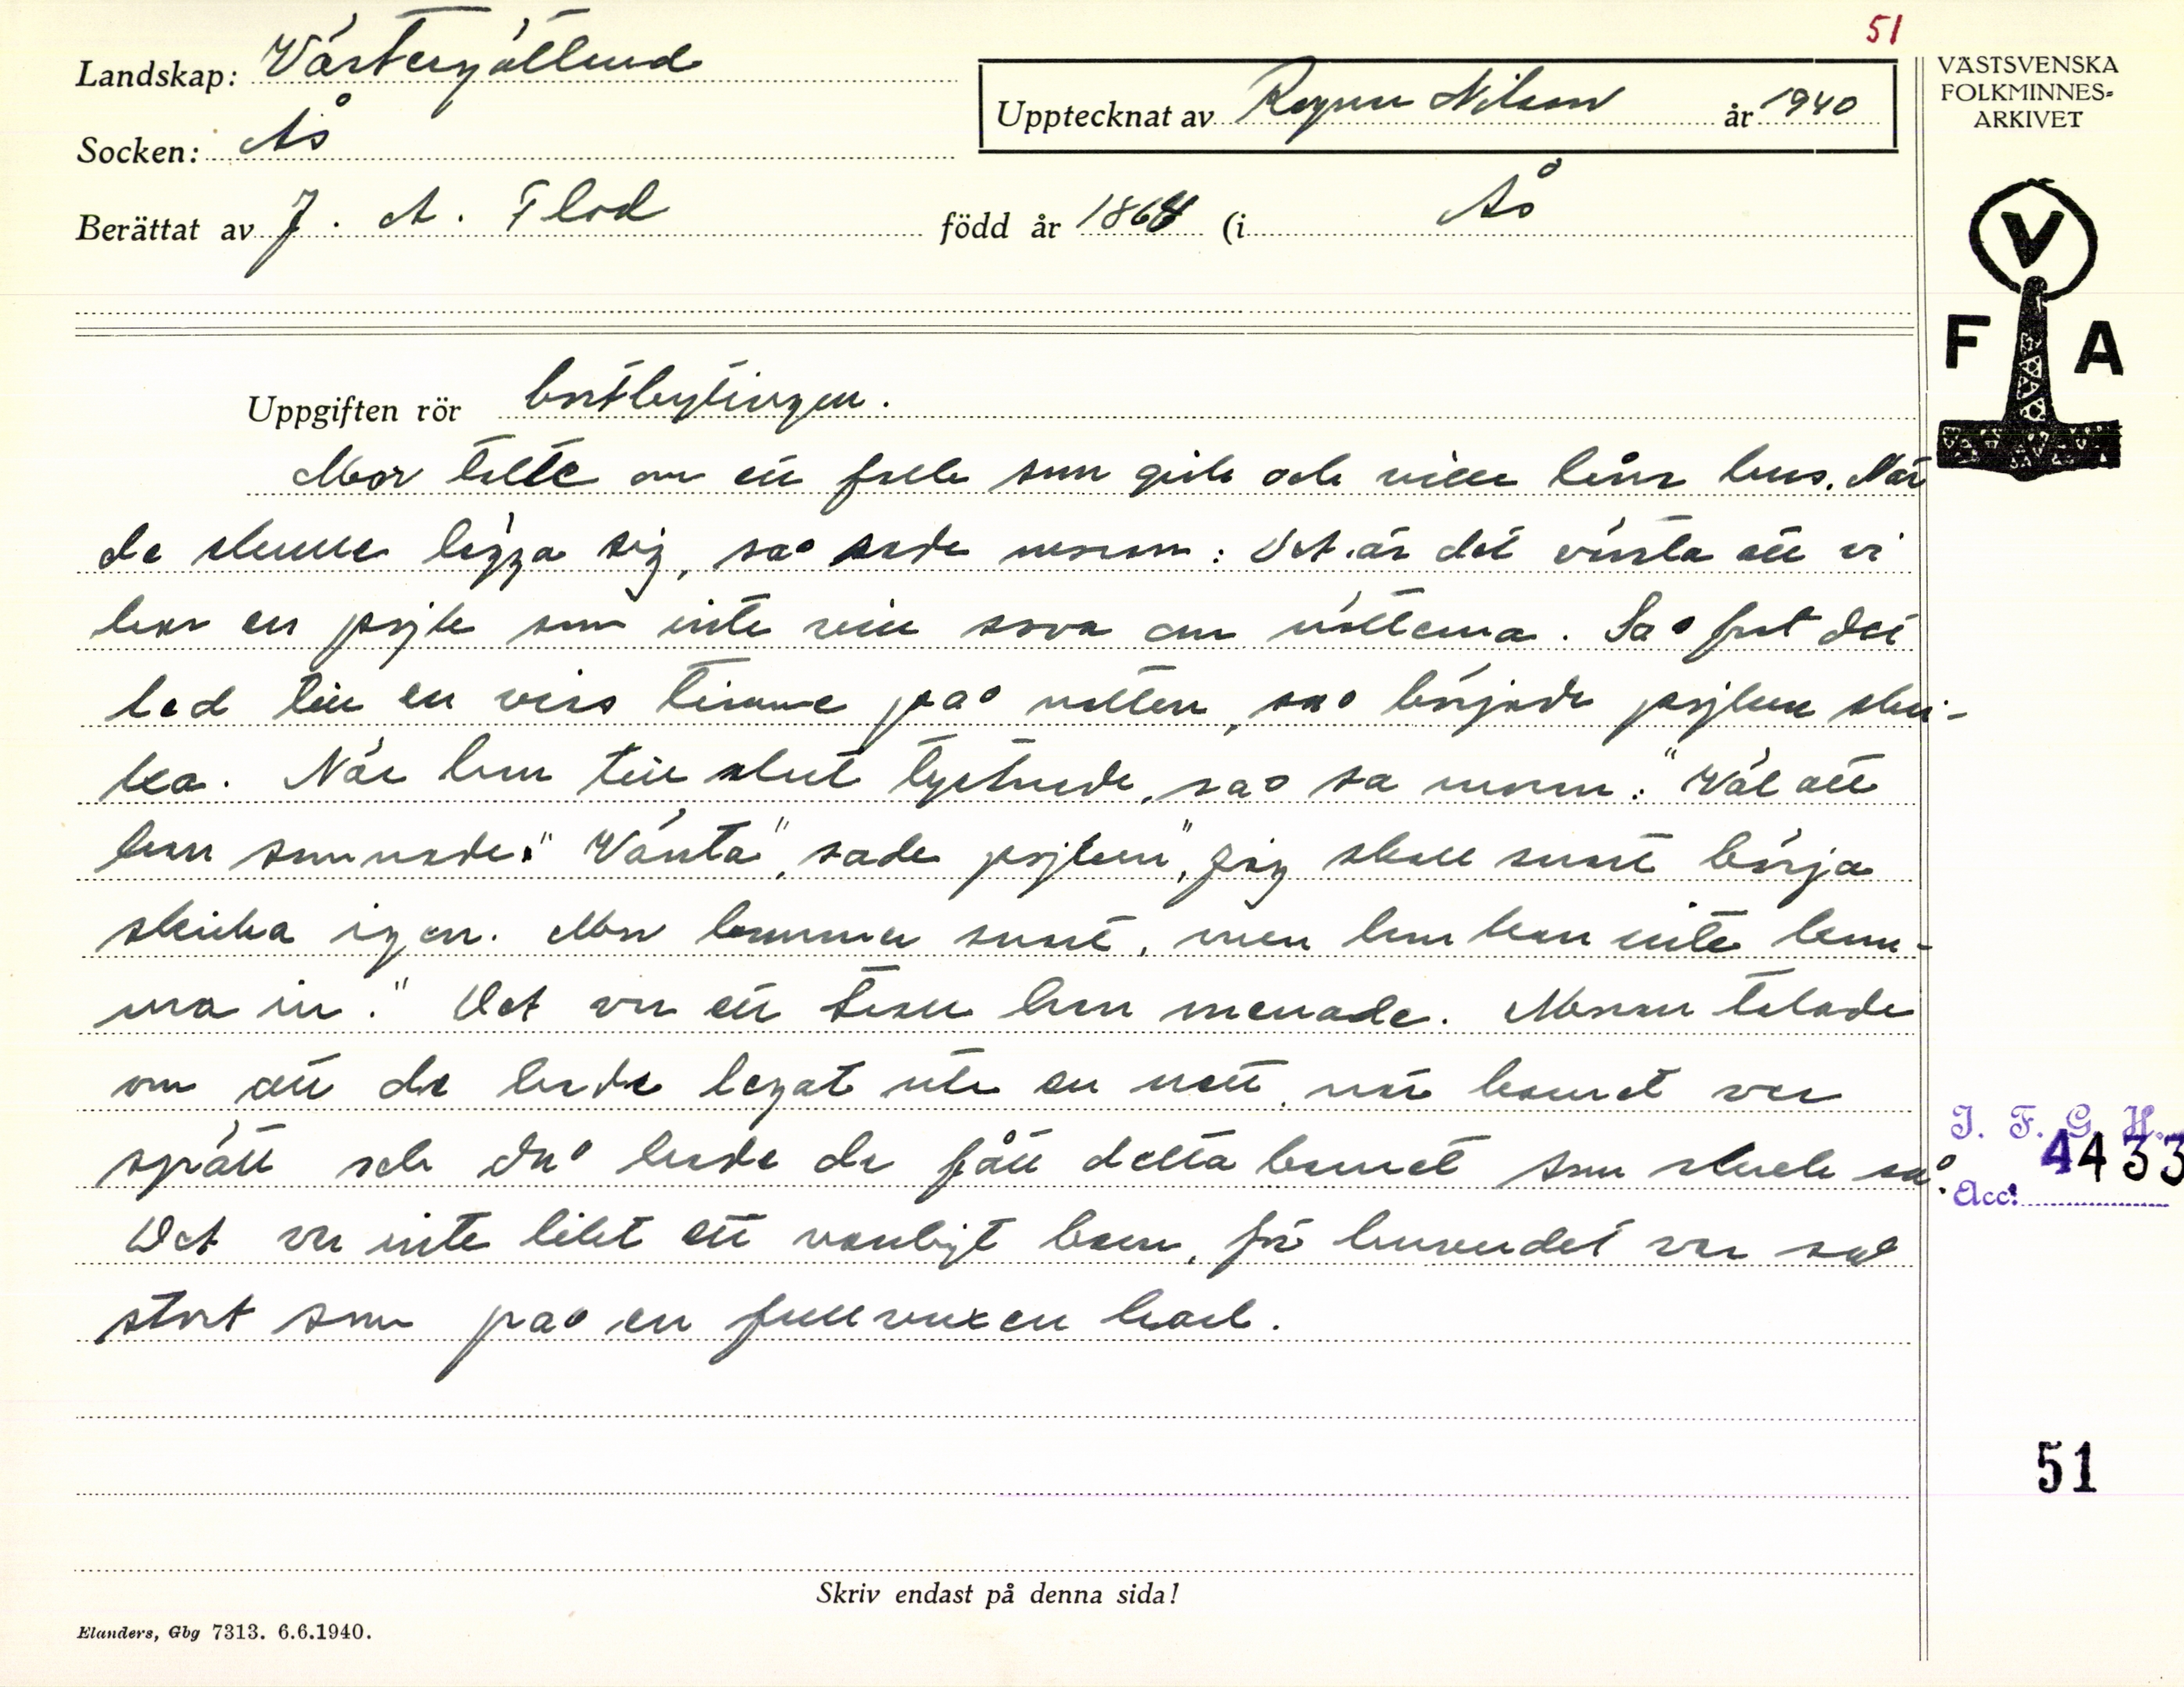 51
Landskap: Västergötland
Upptecknat av Ragnar Nilson år 1940
VÄSTSVENSKA
FOLKMINNES-
ARKIVET
Socken: Ås
Berättat av J. A. Flod född år 1864 (i Ås
V
F A
Uppgiften rör bortbytingen.
Mor talte om ett folk som gick och ville låna hus. När
de skulle lägga sig, sao sade moran: Det är det värsta att vi
har en pojke som inte vill sova om nätterna. Sao fort det
led till en viss timme pao natten, sao började pojken skri-
ka. När han till slut tystnade, sao sa moran: "Väl att
han somnade." "Vänta", sade pojken, "jag skall snart börja
skrika igen. Mor kommer snart, men hon kan inte kom-
ma in." Det var ett troll han menade. Moran talade
om att de hade legat ute en natt, när barnet var
spätt och dao hade de fått detta barnet som skrek sao.
Det var inte likt ett vanligt barn, för huvudet var sao
stort som pao en fullvuxen karl.
I. F. G. H.
4433
Acc:
51
Skriv endast på denna sida!
Elanders, Gbg 7313. 6.6.1940.